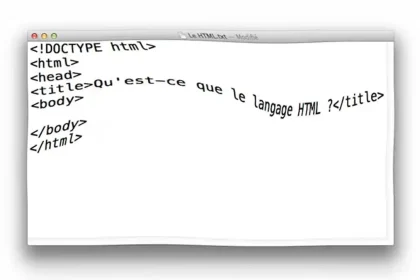 Le HTML.txt — Modifié
<!DOCTYPE html>
<html>
<head>
<title>Qu'est-ce que le langage HTML ?</title>
<body>
</body>
</html>